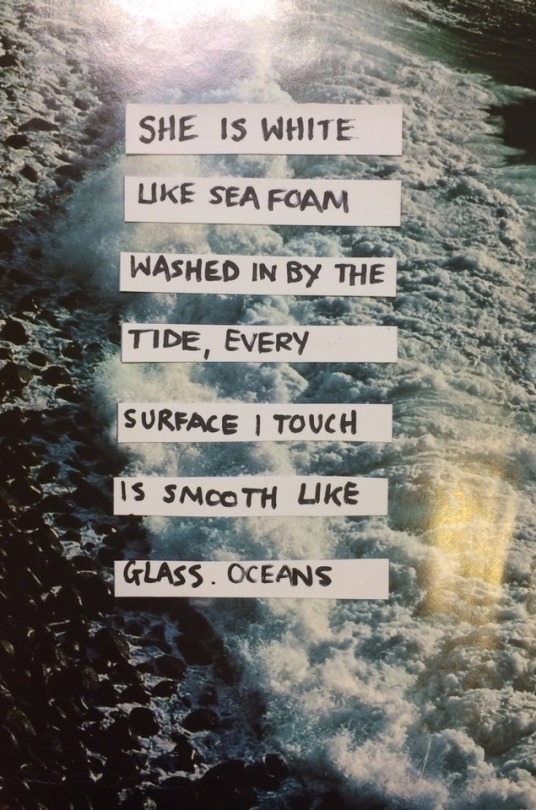 SHE IS WHITE
LIKE SEA FOAM
WASHED IN BY THE
TIDE, EVERY
SURFACE I TOUCH
IS SMOOTH LIKE
GLASS. OCEANS